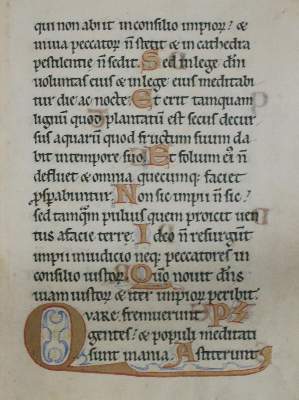 qui non abiit in consilio impioꝝ: &
in uia peccatoꝝ n̄ stetit & in cathedra
pestilentie n̄ sedit. Sed in lege dn̄i
uoluntas eius & in lege eius meditabi
tur die ac nocte. Et erit tamquam
lignum quod plantatū est secus decur
sus aquarū quod fructum suum da
bit in tempore suo. Et folium ei' n̄
defluet & omnia quecumq; faciet
ꝓsꝑabuntur. Non sic impii n̄ sic:
sed tamqm̄ puluis quem proicit uen
tus a facie terre. Ideo n̄ resurgūt
impii in iudicio neq; peccatores in
consilio iustoꝝ. Qm̄ nouit dn̄s
uiam iustoꝝ & iter impioꝝ peribit.
Quare fremuerunt
gentes: & populi meditati
sunt inania. Astiterunt